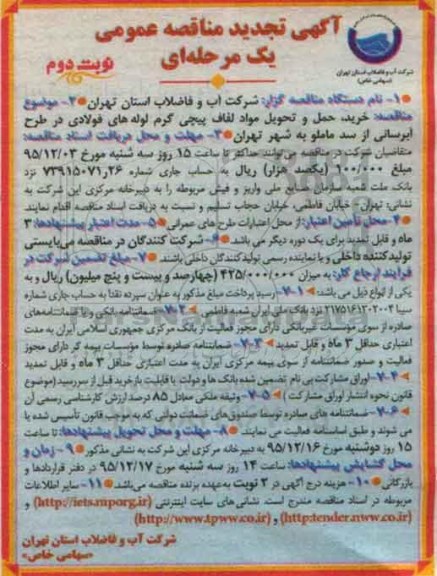 آگهی تجدید مناقصه عمومی
یک مرحله‌ای
نوبت دوم
شرکت آب و فاضلاب استان تهران
(سهامی خاص)
۱- نام دستگاه مناقصه گزار: شرکت آب و فاضلاب استان تهران ۲- موضوع
مناقصه: خرید، حمل و تحویل مواد لفاف پیچی گرم لوله های فولادی در طرح
آبرسانی از سد ماملو به شهر تهران ۳- مهلت و محل دریافت اسناد مناقصه:
متقاضیان شرکت در مناقصه می‌توانند حداکثر تا ساعت ۱۵ روز سه شنبه مورخ ۹۵/۱۲/۰۳
مبلغ ۱۰۰/۰۰۰ (یکصد هزار) ریال به حساب جاری شماره ۲۶ر۷۳۹۱۵۰۷۱ نزد
بانک ملت شعبه سازمان صنایع ملی واریز و فیش مربوطه را به دبیرخانه مرکزی این شرکت به
نشانی: تهران - خیابان فاطمی، خیابان حجاب تسلیم و نسبت به دریافت اسناد مناقصه اقدام نمایند.
۴- محل تأمین اعتبار: از محل اعتبارات طرح های عمرانی ۵- مدت اعتبار پیشنهادها: ۳
ماه و قابل تمدید برای یک دوره دیگر می باشد. ۶- شرکت کنندگان در مناقصه می‌بایستی
تولیدکننده داخلی و یا نماینده رسمی تولیدکنندگان داخلی باشند. ۷- مبلغ تضمین شرکت در
فرایند ارجاع کار: به میزان ۴۲۵/۰۰۰/۰۰۰ (چهارصد و بیست و پنج میلیون) ریال و به
یکی از انواع ذیل می باشد: ۱-۷- رسید پرداخت مبلغ مذکور به عنوان سپرده نقدا به حساب جاری شماره
سیبا ۲۱۷۵۱۶۱۳۰۲۰۰۲ نزد بانک ملی ایران شعبه فاطمی ۲-۷- ضمانتنامه بانکی و یا ضمانتنامه‌های
صادره از سوی مؤسسات غیربانکی دارای مجوز فعالیت از بانک مرکزی جمهوری اسلامی ایران به مدت
اعتباری حداقل ۳ ماه و قابل تمدید ۳-۷- ضمانتنامه صادره توسط مؤسسات بیمه گر دارای مجوز
فعالیت و صدور ضمانتنامه از سوی بیمه مرکزی ایران به مدت اعتباری حداقل ۳ ماه و قابل تمدید
۴-۷- اوراق مشارکت بی نام تضمین شده بانک ها و دولت با قابلیت بازخرید قبل از سررسید (موضوع
قانون نحوه انتشار اوراق مشارکت) ۵-۷- وثیقه ملکی معادل ۸۵ درصد ارزش کارشناسی رسمی آن
۶-۷- ضمانتنامه های صادره توسط صندوق‌های ضمانت دولتی که به موجب قانون تأسیس شده یا
می شوند و طبق اساسنامه فعالیت می نمایند. ۸- مهلت و محل تحویل پیشنهادها: تا ساعت
۱۵ روز دوشنبه مورخ ۹۵/۱۲/۱۶ به دبیرخانه مرکزی این شرکت به نشانی مذکور ۹- زمان و
محل گشایش پیشنهادها: ساعت ۱۴ روز سه شنبه مورخ ۹۵/۱۲/۱۷ در دفتر قراردادها و
بازرگانی ۱۰- هزینه درج آگهی در ۲ نوبت به عهده برنده مناقصه می‌باشد. ۱۱- سایر اطلاعات
مربوطه در اسناد مناقصه مندرج است. نشانی‌های سایت اینترنتی (http://iets.mporg.ir) و
(http:tender.nww.co.ir) و (http://www.tpww.co.ir)
شرکت آب و فاضلاب استان تهران
«سهامی خاص»